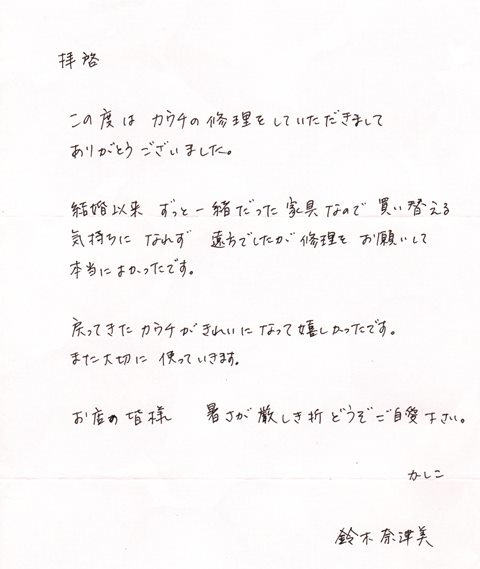 拝啓
この度は カウチの修理をしていただきまして
ありがとうございました。
結婚以来 ずっと一緒だった家具なので 買い替える
気持ちに なれず 遠方でしたが修理を お願いして
本当によかったです。
戻ってきた カウチが きれいに なって 嬉しかったです。
また大切に 使っていきます。
お店の皆様 暑さが厳しき折 どうぞご自愛下さい。
かしこ
鈴木奈津美